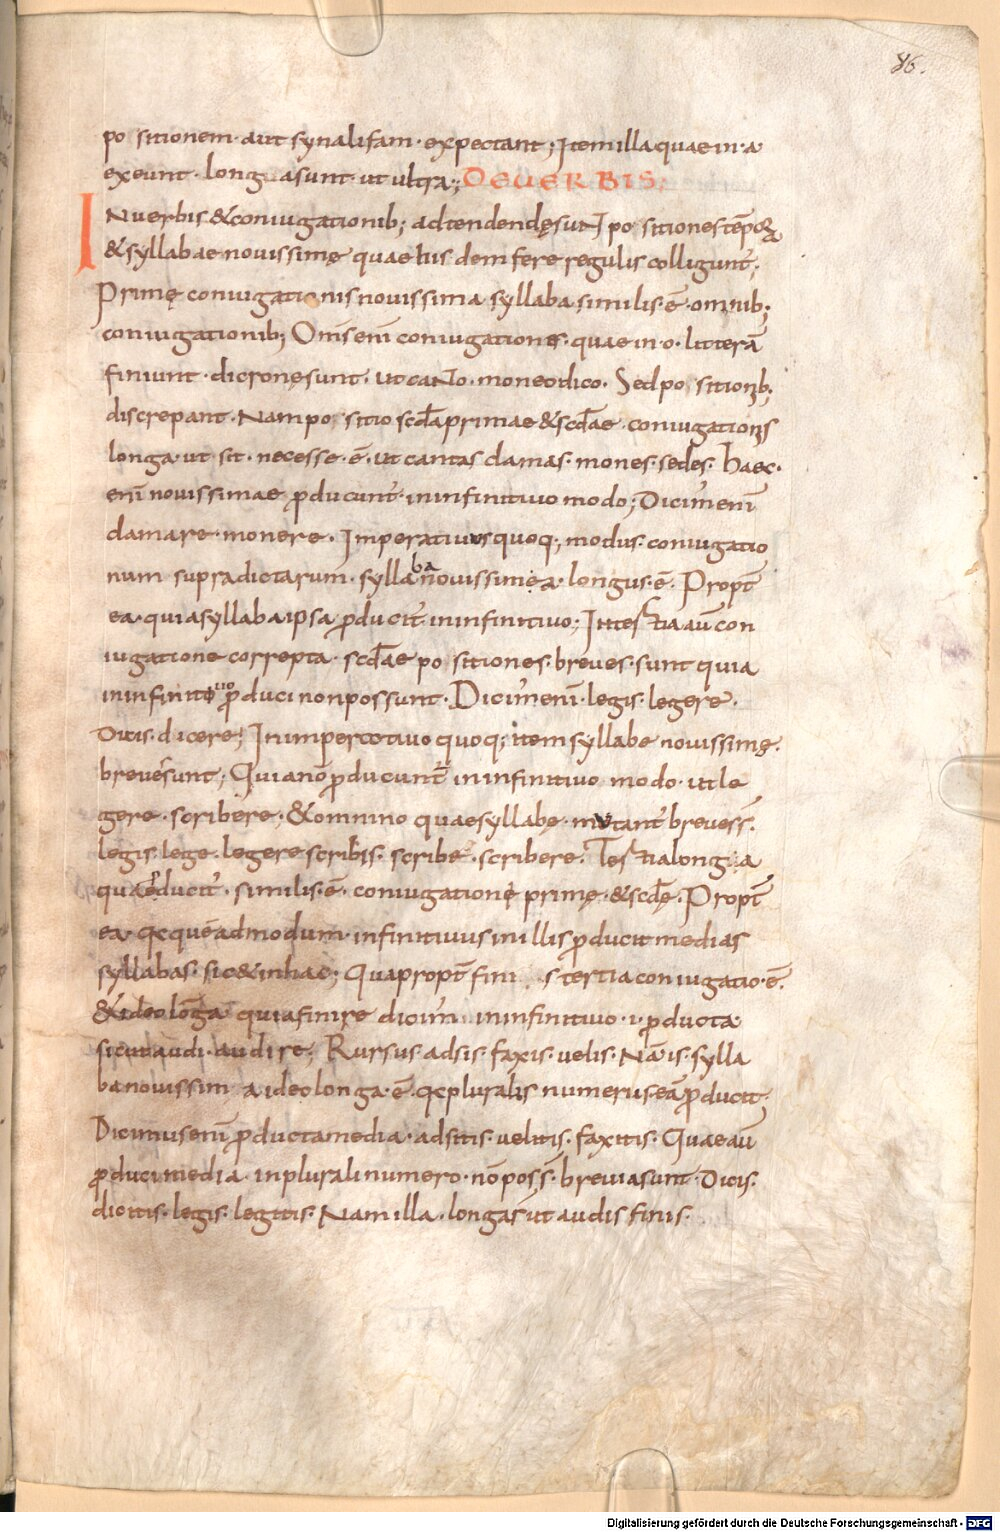 86.
po sitionem· aut synalifam· expectant; Item illa quae in·a·
exeunt· longa sunt· ut ultra; DE UERBIS;
IN uerbis & coniugationib; adtendendę suNt po sitiones tēpora
& syllabae nouissimę quae hisdem fere regulis colligunt̄.
Primę coniugationis nouissima syllaba similis·ē·omnib;
coniugationib; Om̄s enī coniugationes· quae in·o· litterā
finiunt· dicrone sunt· ut caNo· moneo dico· Sed po sitionib;
discrepant· Nam po sitio scd̄a primae & scd̄ae· coniugationis
longa· ut sit· necesse·ē· ut cantas clamas· mones· sedes· haec·
enī nouissimae p̄ducunt̄ in infinitiuo modo; Dicim̄ enī
clamare· monere· Imperatiuus quoq; modus· coniugatio
num supradictarum· syllaba nouissimę a· longus·ē· Propt̄
ea· quia syllaba ipsa p̄ducit̄ in infinitiuo; In tertia aū con
iugatione correpta· scd̄ae po sitiones· breues· sunt quia
in infinitiuo p̄duci non possunt· Dicim̄ enī· legis· legere·
Dicis· dicere; In impercotiuo quoq; item syllabe nouissimę·
breues sunt; Quia nō p̄ducunt̄ in infinitiuo modo· ut le
gere· scribere; & omnino quae syllabę· mutant̄ breues s̄.
legis· lege· legere scribis· scribe· scribere· Tertia longa
quae p̄ducit̄· similis·ē· coniugationę primę· & scd̄ę· Propt̄
ea· qc quēadmodum· infinitiuus in illis p̄ducit medias
syllabas· sic & in hac; Quapropt̄ finis tertia coniugatio·ē·
& ideo longa quia finire dicim̄ in infinitiuo·i·p̄ducta
sicut audi· audire; Rursus adsis· faxis· uelis· Nā is· sylla
ba nouissima ideo longa·ē· qc pluralis numerus eā p̄ducit;
Dicimus enī p̄ducta media· adsitis· uelitis· faxitis· Quae aū
p̄duci media· in plurali numero· nō poss̄· breuia sunt· Dicis·
dicitis· legis· legitis· Nam illa· longa s̄ ut audis finis·
Digitalisierung gefördert durch die Deutsche Forschungsgemeinschaft - DFG